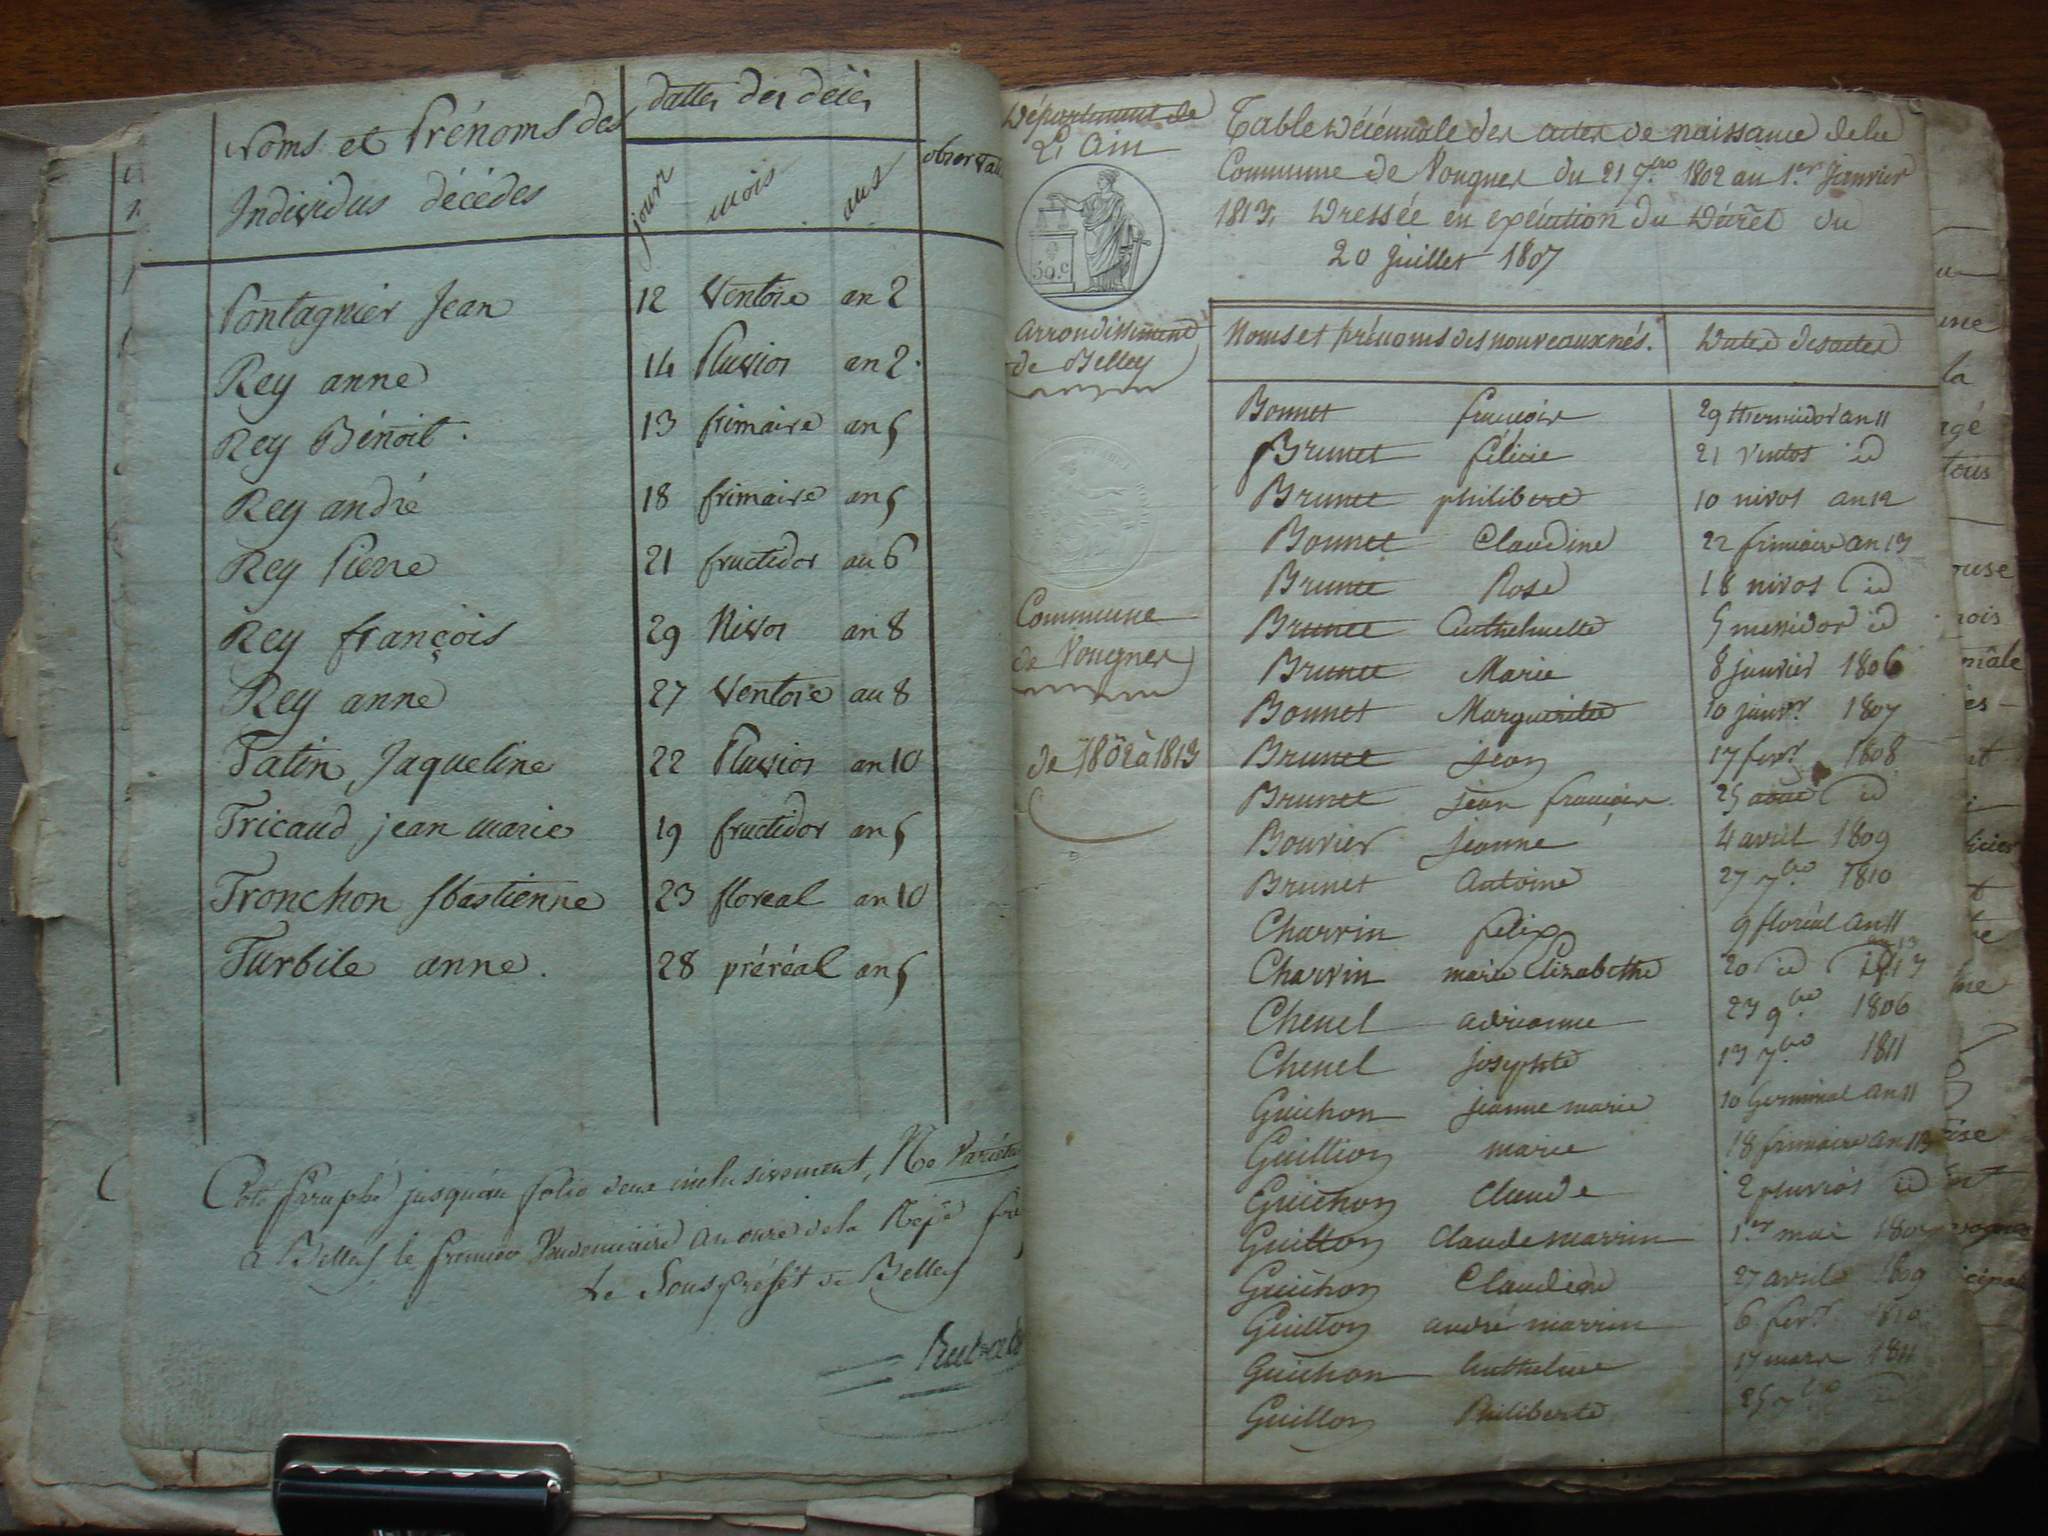 Noms et Prénoms des
Individus décédés
dattes des décès
jours mois ans
observat
Pontagnier Jean 12 Ventose an 2
Rey anne 14 Pluvios an 2
Rey Bénoit 13 frimaire an 5
Rey andré 18 frimaire an 5
Rey Pierre 21 fructidor an 6
Rey françois 29 Nivos an 8
Rey anne 27 Ventose an 8
Tatin Jaqueline 22 Pluvios an 10
Tricaud jean marie 19 fructidor an 5
Tronchon sbastienne 23 floreal an 10
Turbile anne 28 préréal an 5
Coté Paraphé jusqu'au folio deux inclusivement, Ne Varietur
a Belley le premier Vendemiaire an onze de la Rep.e
Le Sous préfet de Belley
Département de
L'Ain
39.c
arrondissement
de Belley
Commune
de Vougnes
de 1802 à 1813
Table décénnale des actes de naissance de la
Commune de Vougnes du 21 7.bre 1802 au 1.er Janvier
1813, dressée en exécution du décret du
20 Juillet 1807
Noms et prénoms des nouveaux nés. Dates des actes
Bonnet françois 29 thermidor an 11
Brunet félicie 21 Ventos id
Brunet philibert 10 nivos an 12
Bonnet Claudine 22 frimaire an 13
Brunet Rose 18 nivos id
Brunet Anthelmette 5 messidor id
Brunet Marie 8 janvier 1806
Bonnet Marguerite 10 janv.r 1807
Brunet jean 17 fevr. 1808
Brunet jean françois 25 aout id
Bouvier jeanne 4 avril 1809
Brunet Antoine 27 7.bre 1810
Charvin felix 9 floréal an 11
Charvin marie Elizabethe 20 id an 13
Chenel adrianne 23 9.bre 1806
Chenel josephte 13 7.bre 1811
Guichon jeanne marie 10 Germinal an 11
Guillion marie 18 frimaire an 13
Guichon Claude 2 pluvios id
Guitton Claude marrin 1.er mai 1807
Guichon Claudine 27 avril 1809
Guitton andré marrin 6 fevr. 1810
Guichon Anthelme 17 mars 1811
Guillon Philiberte 25 7.bre id